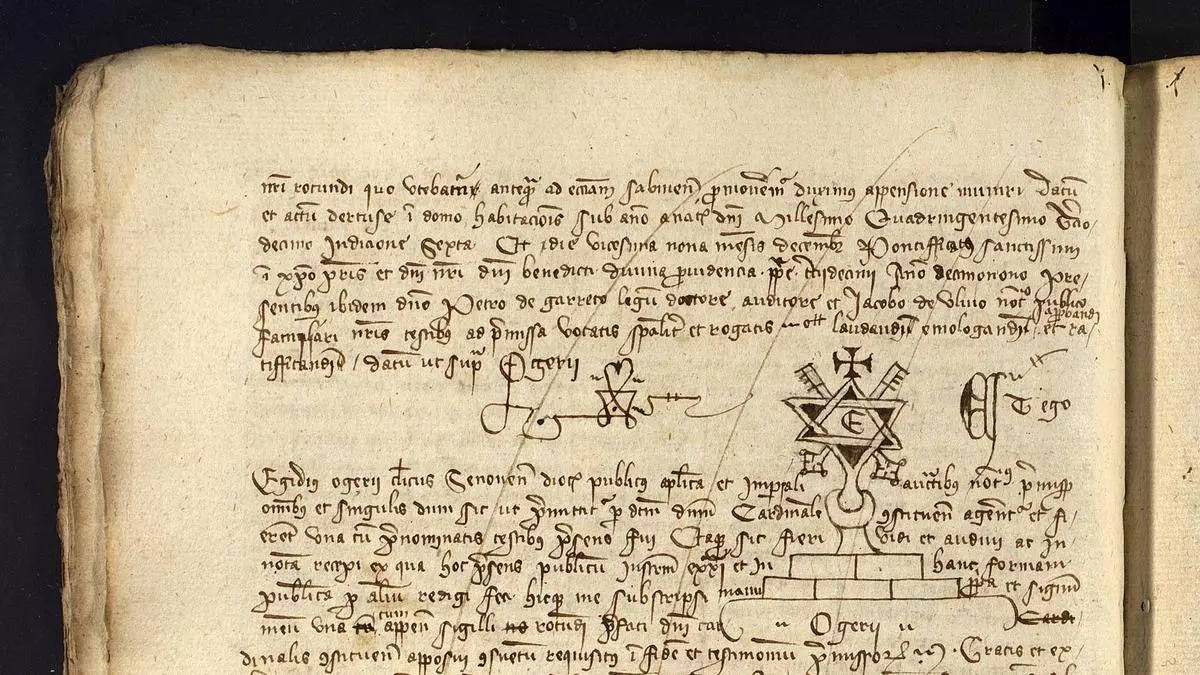 nri rotundi quo utebatur anteq̃ ad eccam sabinen̄ promoverem̄ durimus appensione muniri Datū
et actū dertuse ī domo habitacōis sub año a natł dñi Millesimo Quadringentesimo
decimo Indicione Sexta Et die vicesima nona mēsis decembr̄ Pontifficatꝰ sanctissimi
ī xp̄o pr̄is et dñi nr̄i dñi benedicti divina p̱videncia p̄pe t̄tiidecimi Anō decimonono Pre-
sentibus ibidem dño Petro de garreto legū doctore auditore et Jacobo de Ulmo not̄ publico
familiari nr̄is testibꝰ ad p̄missa vocatis sp̄alit̄ et rogatis laudandū emologandū approbandū et ra-
tifficandū / datū ut sup̃ Ogerii
E
Et ego
Egidiꝰ ogerii cl̄icus Senonen̄ dioc̄ publicꝰ ap̄lica et Imp̄iali auct̄ibus not̄
om̄ibꝰ et singulis dum sic ut p̄mittit̄ p̱ dc̄m dñm Cardinalē ꝯstituen̄ agent̄ et fi-
erēt una cū p̄nominatis testibꝰ p̄sens fui Eaq̨ sic fieri vidi et audivi ac In
notā recepi ex qua hoc p̄sens publicū Instr̄m exˣⁱ et In hanc formam
publicā p̱ aliū redigi feci hicq̨ me subscripsi manu p̱pa et signū
meū una cum appen̄ sigilli rotūdi p̄fati dñi car Ogerii
dinalis ꝯstituen̄ apposui ꝯsuetū requisitꝰ ī fidē et testimoniū p̄missor̄ Gratis et ex-